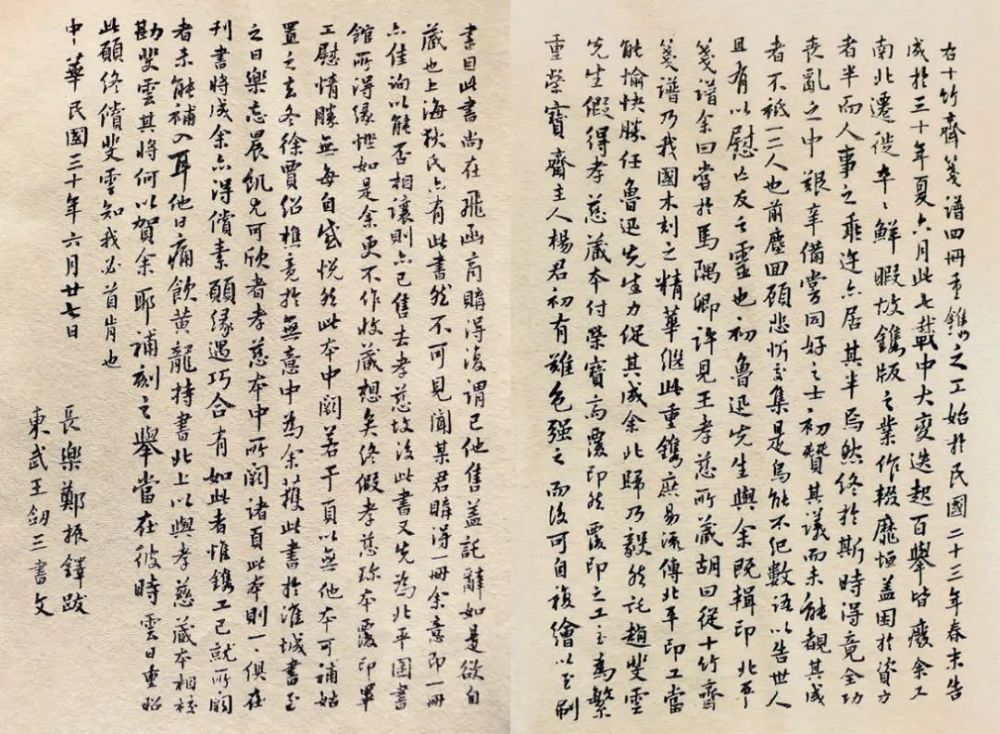 右十竹齋箋譜四冊重鐫之工始於民國二十三年春末告
成於三十年夏六月此七載中大變迭起百舉皆廢余工
南北遷徙卒卒鮮暇故鐫版之業作輟靡恒蓋困於資力
者半而人事之乖迕亦居其半焉然終於斯時得竟全功
喪亂之中艱辛備嘗同好之士初贊其議而未能觀其成
者不祗一二人也前塵回顧悲忻交集是烏能不紀數語以告世人
且有以慰亡友之靈也初魯迅先生與余既輯印北平
箋譜余曰當於馬隅卿許見王孝慈所藏胡曰從十竹齋
箋譜乃我國木刻之精華繼此重鐫庶易流傳北平印工當
能愉快勝任魯迅先生力促其成余北歸乃毅然託趙斐雲
先生假得孝慈藏本付榮寶齋覆印然覆印之工至為繁
重榮寶齋主人楊君初有難色強之而後可自複繪以至刷
書目此書尚在飛函商購得復謂已他售蓋託辭如是欲自
藏也上海狄氏亦有此書然不可見聞某君購得一冊余意印一冊
亦佳詢以能否相讓則亦已售去孝慈故後此書又先為北平圖書
館所得緣慳如是余更不作收藏想矣終假孝慈珍本覆印畢
工慰情勝無每自怡悅然此本中闕若干頁以無他本可補姑
置之去冬徐賈紹樵竟於無意中為余獲此書於淮城書至
之日樂忘晨飢尤可欣者孝慈本中所闕諸頁此本則一一俱在
刊書將成余亦得償素願緣遇巧合有如此者惟鐫工已就所闕
者未能補入耳他日痛飲黃龍持書北上以與孝慈藏本相校
勘斐雲其將何以賀余耶補刻之舉當在彼時雲日重昭
此願終償斐雲知我必首肯也
中華民國三十年六月廿七日
長樂鄭振鐸跋
東武王劍三書文